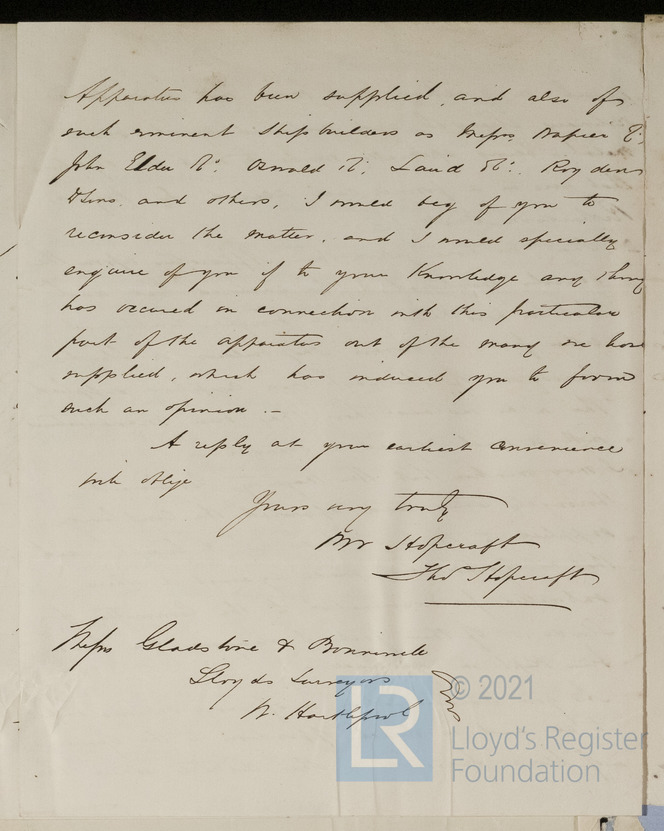 Apparatus has been supplied, and also of
such eminent Shipbuilders as Messrs Napier &
John Elder & Co. Oswald & Co. Laird & Co. Royden
& Sons. and others, I would beg of you to
reconsider the matter. and I would specially
enquire of you if to your Knowledge any thing
has occured in connection with this particular
part of the apparatus out of the many we have
supplied, which has induced you to form
such an opinion. —
A reply at your earliest convenience
will oblige
Yours very truly
Hopcraft
Thos Hopcraft
Messrs Gladstone &
Lloyds Surveyors
W. Hartlepool
© 2021
LR
Lloyd's Register
Foundation